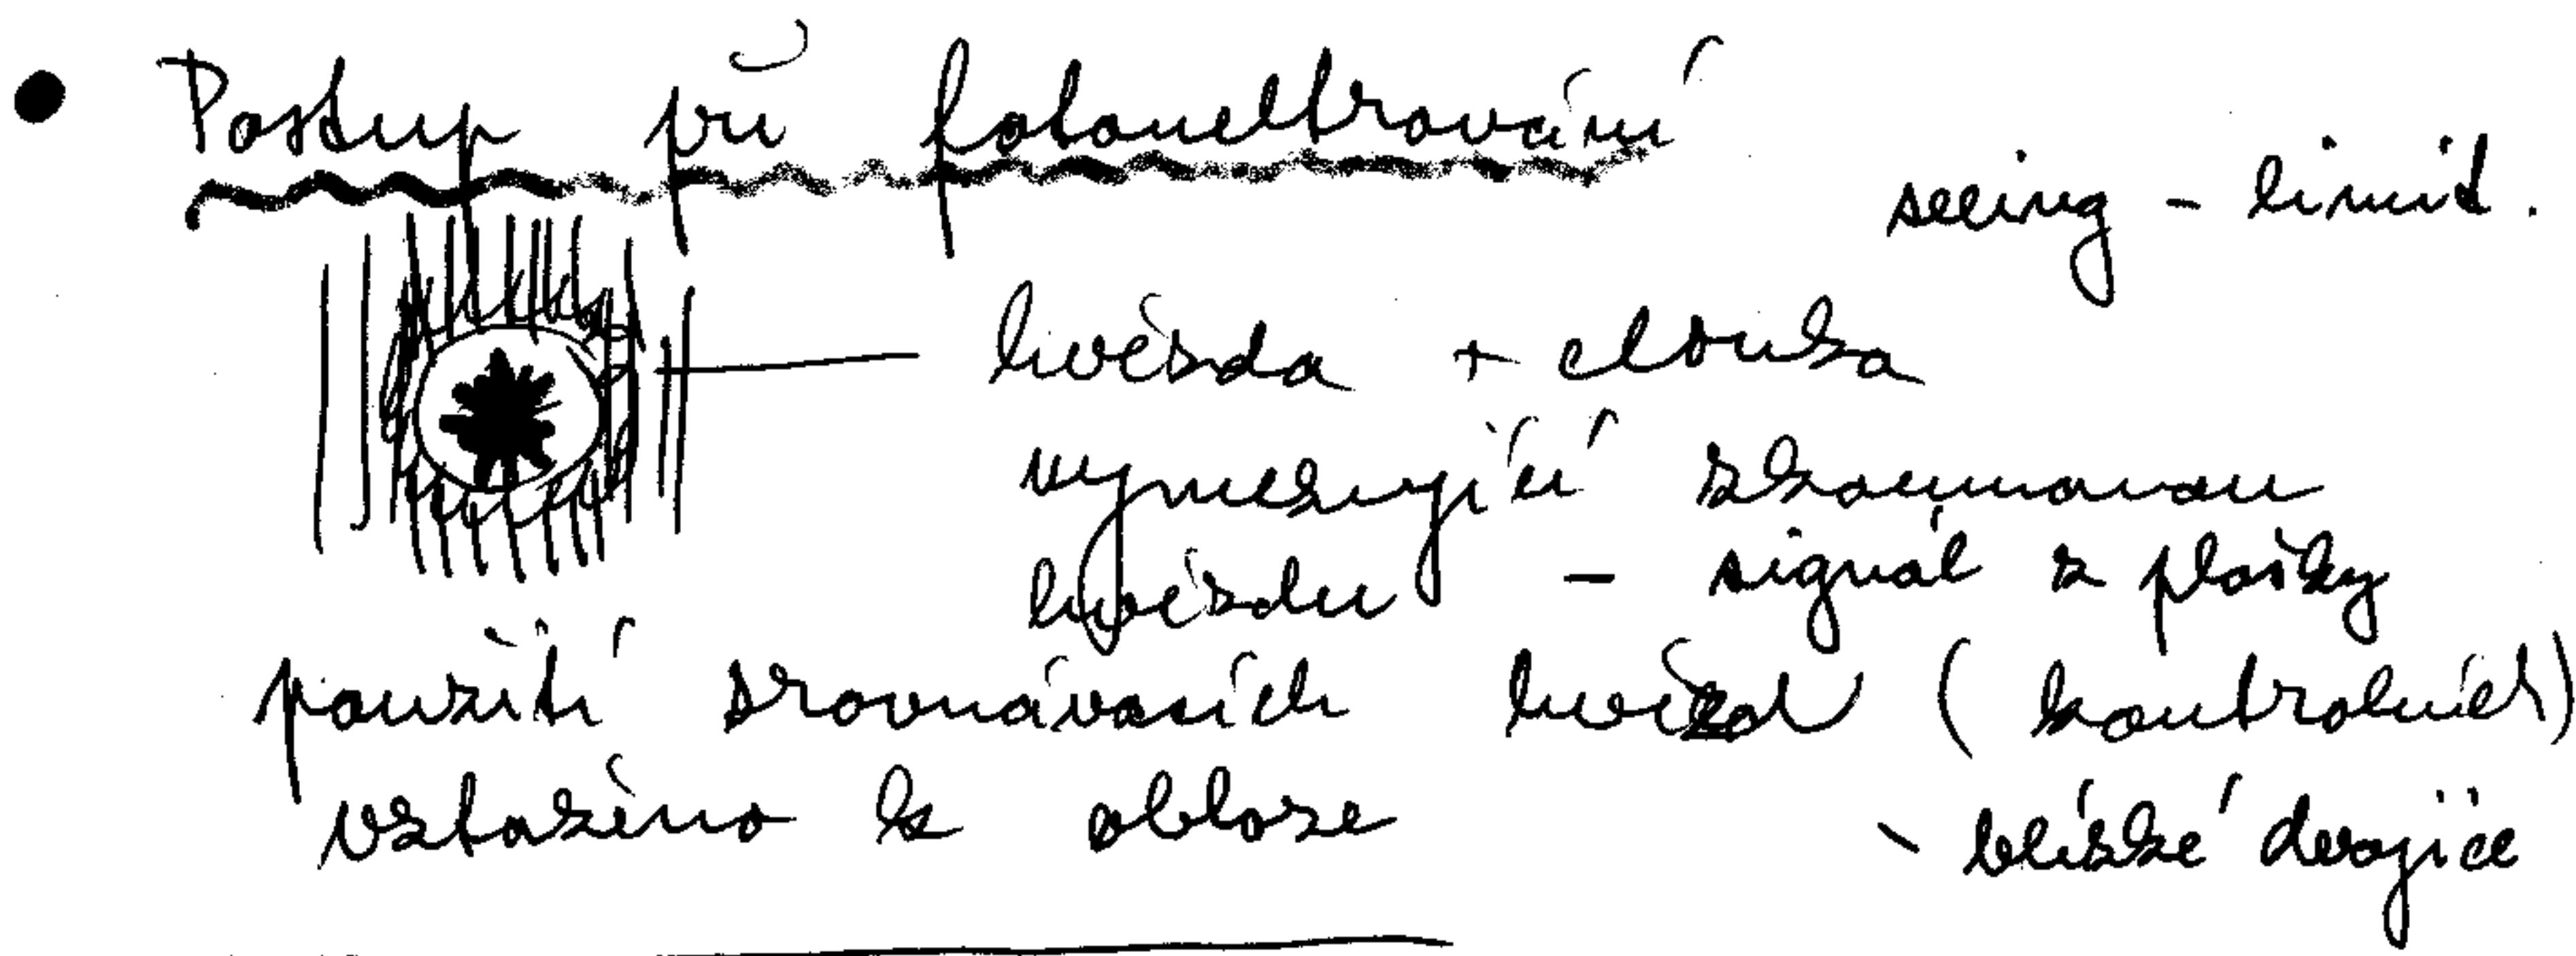 Postup při fotometrování
seeing - limit.
hvězda + clonka
vymezující zkoumanou
hvězdu - signál z plošky
použití srovnávacích hvězd (kontrolních)
vztaženo k obloze - blízké dvojice